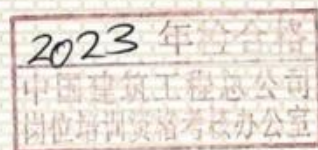 2023 年检合格
中国建筑工程总公司
岗位培训资格考核办公室